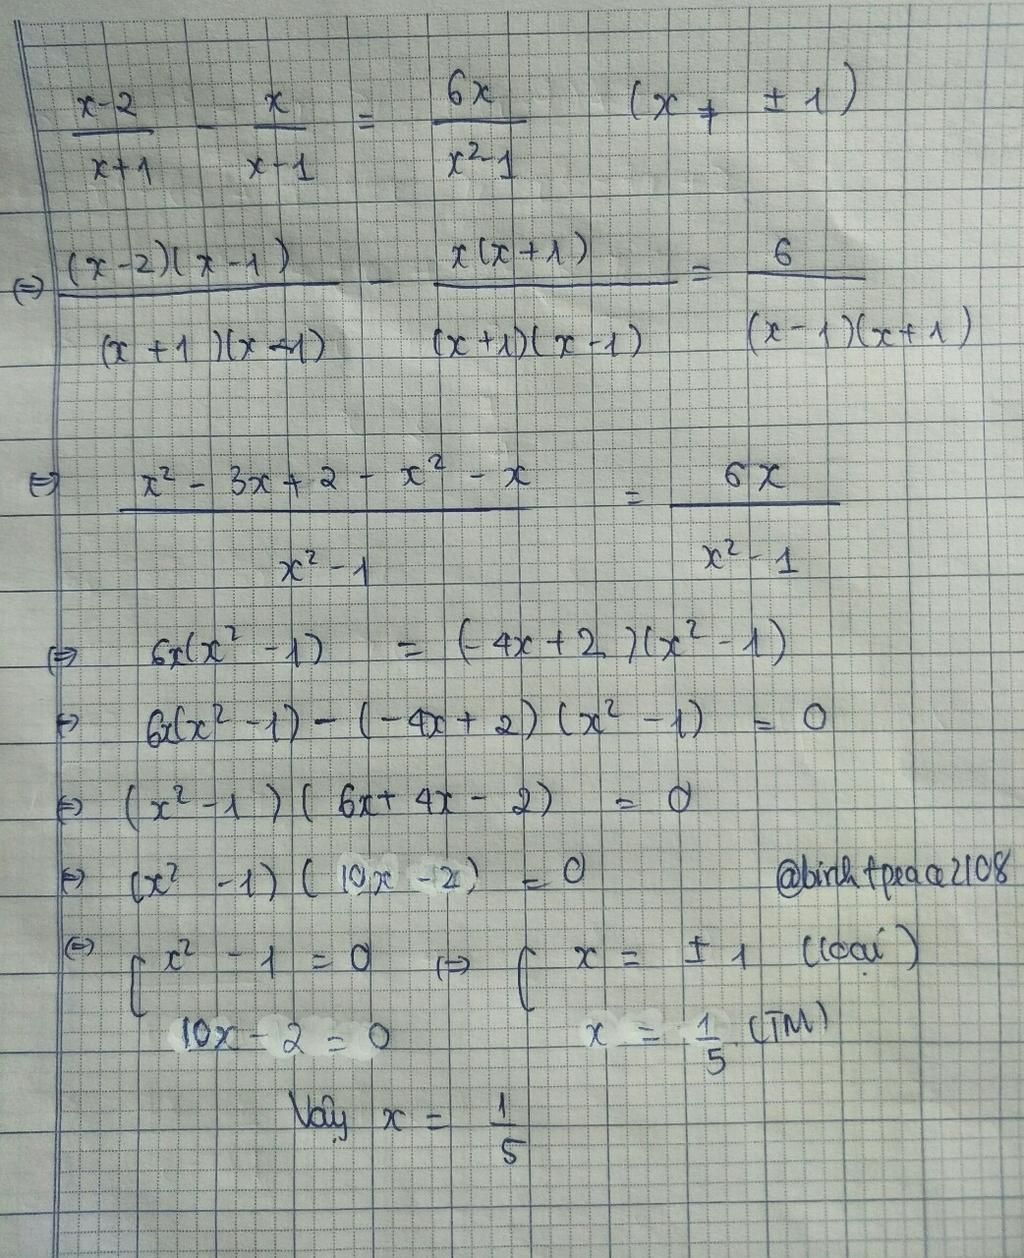 x-2/x+1 - x/x-1 = 6x/x²-1 (x ≠ ± 1)
⇔ (x-2)(x-1)/(x+1)(x-1) - x(x+1)/(x+1)(x-1) = 6/(x-1)(x+1)
⇔ x² - 3x + 2 - x² - x/x² - 1 = 6x/x² - 1
⇔ 6x(x² - 1) = (-4x + 2)(x² - 1)
⇔ 6x(x² - 1) - (-4x + 2)(x² - 1) = 0
⇔ (x² - 1)(6x + 4x - 2) = 0
⇔ (x² - 1)(10x - 2) = 0
⇔ [ x² - 1 = 0 ⇔ [ x = ± 1 (loại)
10x - 2 = 0 x = 1/5 (TM)
Vậy x = 1/5